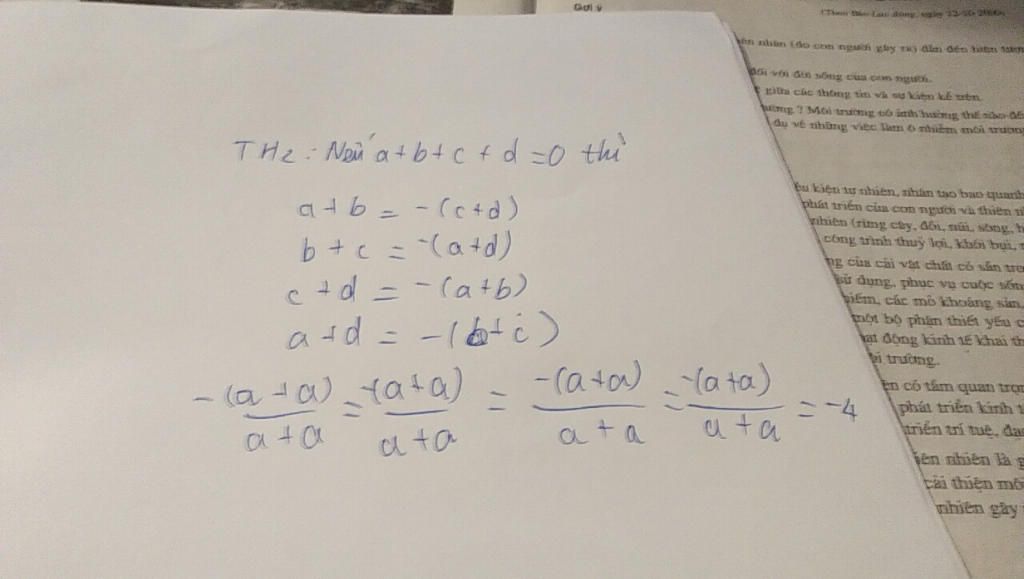 Gợi ý
(Theo Báo Lao động, ngày
nhân (do con người gây ra) dẫn đến hiện
đối với đời sống của con người.
giữa các thông tin và sự kiện kể trên.
? Môi trường có ảnh hưởng thế nào
dụ về những việc làm ô nhiễm môi
TH2: Nếu a+b+c+d=0 thì
a+b = -(c+d)
b+c = -(a+d)
c+d = -(a+b)
a+d = -(b+c)
-(a+a)/a+a = -(a+a)/a+a = -(a+a)/a+a = -(a+a)/a+a = -4
kiện tự nhiên, nhân tạo bao quanh
phát triển của con người và thiên
nhiên (rừng cây, đồi, núi, sông,
công trình thuỷ lợi, khói bụi,
của cải vật chất có sẵn
sử dụng, phục vụ cuộc
các mỏ khoáng sản,
một bộ phận thiết yếu
động kinh tế khai
trường.
có tầm quan
phát triển kinh
triển trí tuệ, đạo
nhiên là
cải thiện
nhiên gây